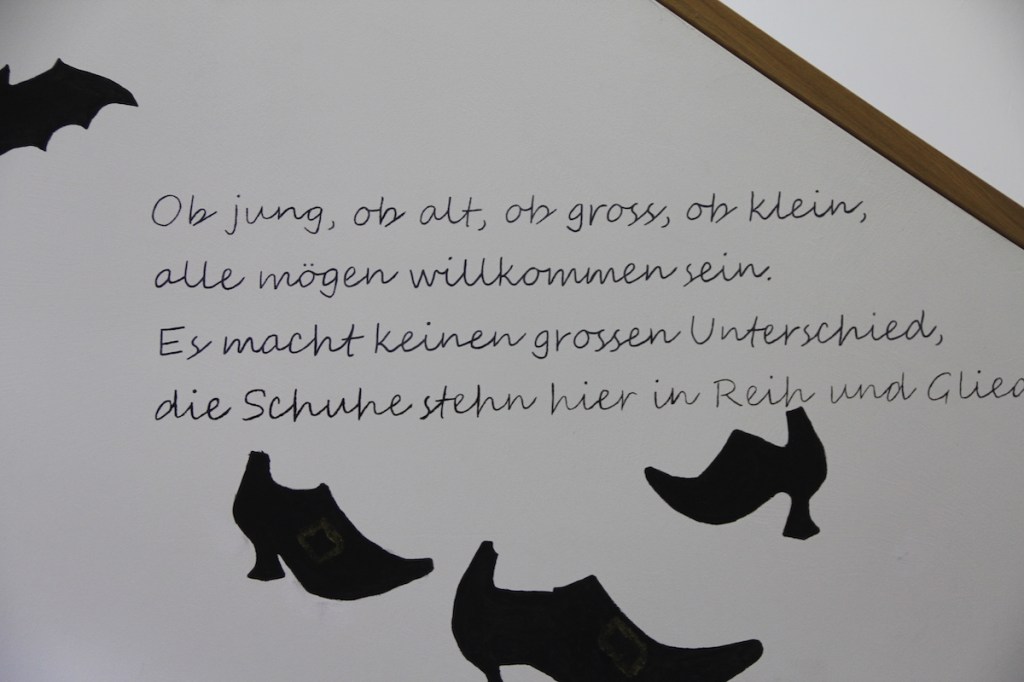 Ob jung, ob alt, ob gross, ob klein,
alle mögen willkommen sein.
Es macht keinen grossen Unterschied,
die Schuhe stehn hier in Reih und Glied